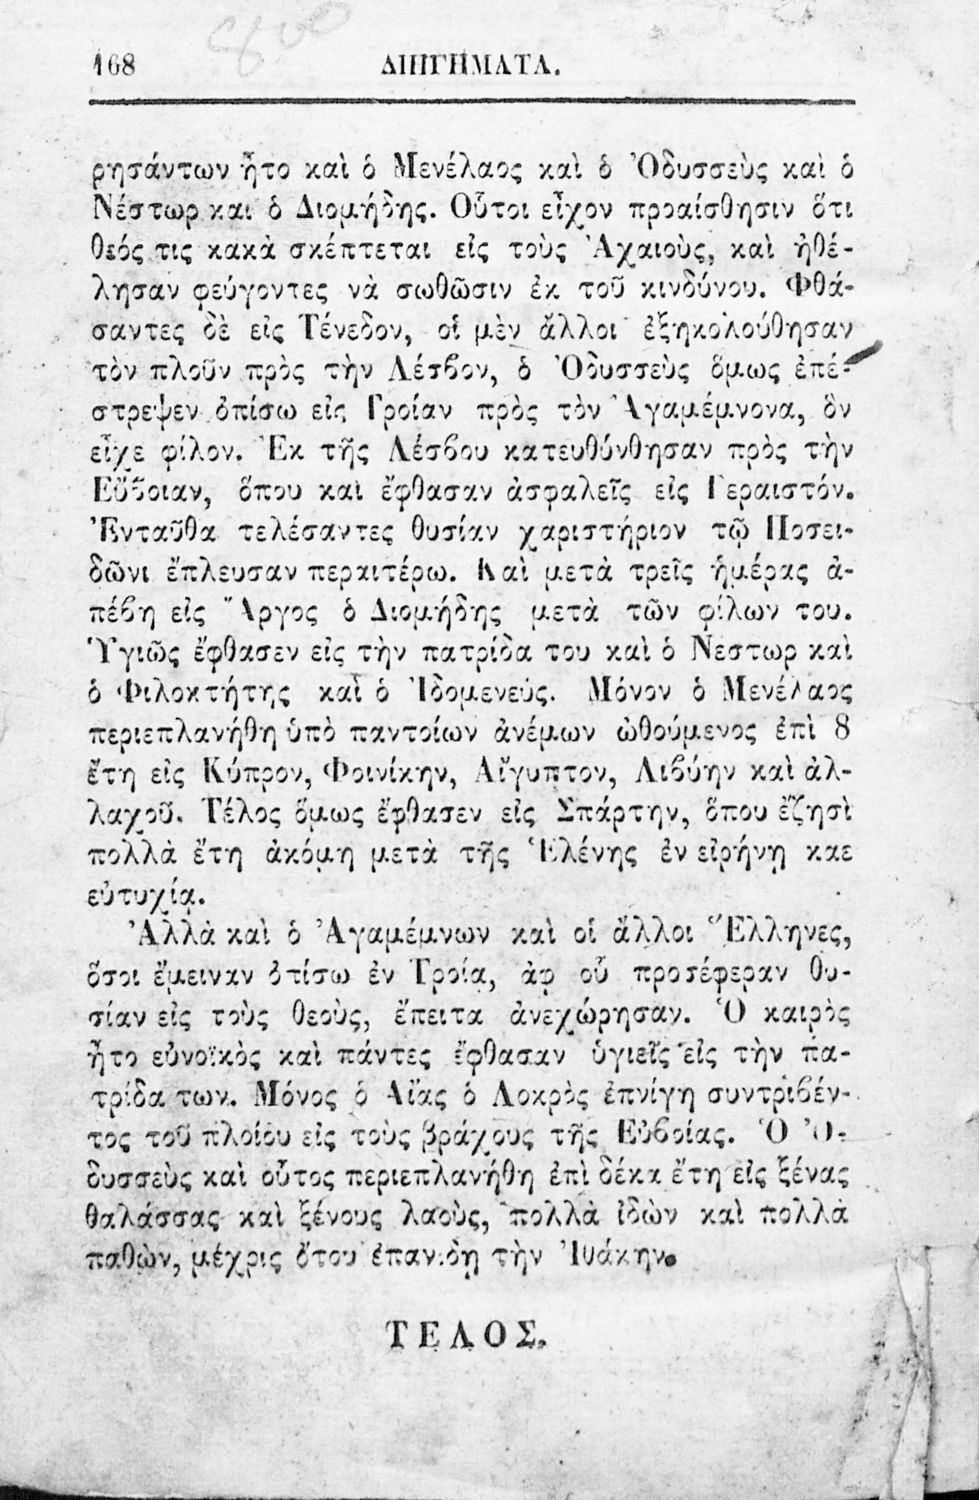 168 ΔΙΗΓΗΜΑΤΑ.
ρησάντων ἦτο καὶ ὁ Μενέλαος καὶ ὁ Ὀδυσσεὺς καὶ ὁ
Νέστωρ και ὁ Διομήδης. Οὗτοι εἶχον προαίσθησιν ὅτι
θεός τις κακὰ σκέπτεται εἰς τοὺς Ἀχαιοὺς, καὶ ἠθέ-
λησαν φεύγοντες νὰ σωθῶσιν ἐκ τοῦ κινδύνου. Φθά-
σαντες δὲ εἰς Τένεδον, οἱ μὲν ἄλλοι ἐξηκολούθησαν
τὸν πλοῦν πρὸς τὴν Λέσβον, ὁ Ὀδυσσεὺς ὅμως ἐπέ-
στρεψεν ὀπίσω εἰς Τροίαν πρὸς τὸν Ἀγαμέμνονα, ὃν
εἶχε φίλον. Ἐκ τῆς Λέσβου κατευθύνθησαν πρὸς τὴν
Εὔβοιαν, ὅπου καὶ ἔφθασαν ἀσφαλεῖς εἰς Γεραιστόν.
Ἐνταῦθα τελέσαντες θυσίαν χαριστήριον τῷ Ποσει-
δῶνι ἔπλευσαν περαιτέρω. Καὶ μετὰ τρεῖς ἡμέρας ἀ-
πέβη εἰς Ἄργος ὁ Διομήδης μετὰ τῶν φίλων του.
Ὑγιῶς ἔφθασεν εἰς τὴν πατρίδα του καὶ ὁ Νεστωρ καὶ
ὁ Φιλοκτήτης καὶ ὁ Ἰδομενεύς. Μόνον ὁ Μενέλαος
περιεπλανήθη ὑπὸ παντοίων ἀνέμων ὠθούμενος ἐπὶ 8
ἔτη εἰς Κύπρον, Φοινίκην, Αἴγυπτον, Λιβύην καὶ ἀλ-
λαχοῦ. Τέλος ὅμως ἔφθασεν εἰς Σπάρτην, ὅπου ἔζησὶ
πολλὰ ἔτη ἀκόμη μετὰ τῆς Ἑλένης ἐν εἰρήνῃ καε
εὐτυχίᾳ.
Ἀλλὰ καὶ ὁ Ἀγαμέμνων καὶ οἱ ἄλλοι Ἕλληνες,
ὅσοι ἔμειναν ὀπίσω ἐν Τροίᾳ, ἀφ οὗ προσέφεραν θυ-
σίαν εἰς τοὺς θεοὺς, ἔπειτα ἀνεχώρησαν. Ὁ καιρὸς
ἦτο εὐνοϊκὸς καὶ πάντες ἔφθασαν ὑγιεῖς εἰς τὴν πα-
τρίδα των. Μόνος ὁ Αἴας ὁ Λοκρὸς ἐπνίγη συντριβέν-
τος τοῦ πλοίου εἰς τοὺς βράχους τῆς Εὐβοίας. Ὁ Ὀ-
δυσσεὺς καὶ οὗτος περιεπλανήθη ἐπὶ δέκα ἔτη εἰς ξένας
θαλάσσας καὶ ξένους λαοὺς, πολλὰ ἰδὼν καὶ πολλὰ
παθὼν, μέχρις ὅτου ἐπανίδῃ τὴν Ἰθάκην.
ΤΕΛΟΣ.